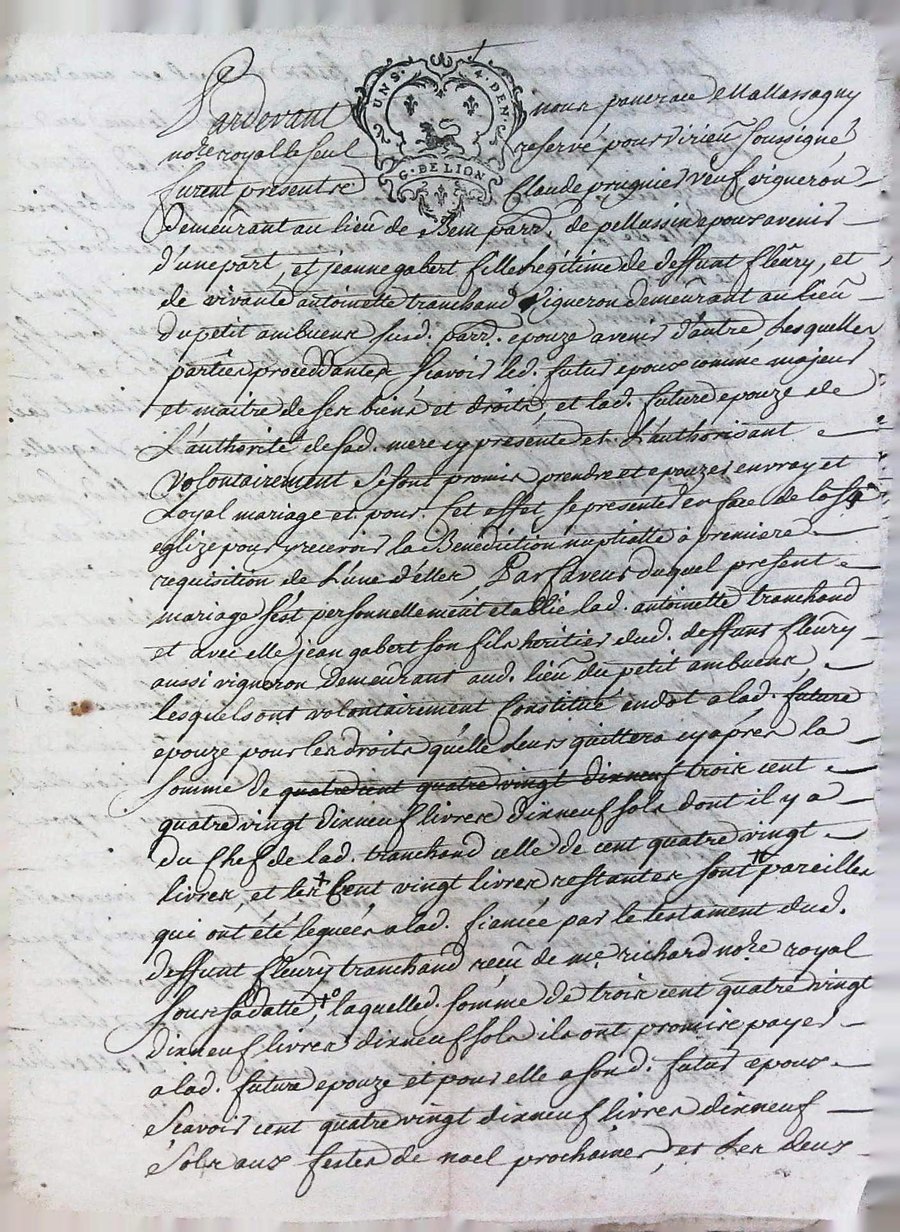 UN S. 4. DEN
G. DE LION
Pardevant nous pancrace Mallassagny
no.re royal le seul reservé pour virieu soussigné
furent presents Claude prugnier veuf vigneron
demeurant au lieu de Bem parr. de pellussin epoux avenir
d'une part, et jeanne gabert fille legitime de deffunt fleury, et
de vivante antoinette tranchand vigneron demeurant au lieu
du petit ambuent susd. parr. epouze avenir d'autre, Lesquelles
parties proceddantes scavoir led. futur epoux comme majeur
et maitre de ses biens et droits, et lad. future epouze de
L'authorité de sad. mere cy presente et L'authorisant
volontairement se sont promis prendre et epouzer en vray et
Loyal mariage et pour cet effet se presenter en face de la Ste
eglize pour y recevoir la Benediction nuptialle a premiere
requisition de L'une d'elles, Par faveur duquel present
mariage s'est personnellement etablie lad. antoinette tranchand
et avec elle jean gabert son fils heritier dud. deffunt fleury
aussi vigneron demeurant aud. lieu du petit ambuent,
lesquels ont volontairement Constitué en dot a lad. future
epouze pour les droits qu'elle Leurs quittera cy aprés la
somme de quatre cent quatre vingt dixneuf trois cent
quatre vingt dixneuf livres dixneuf sols dont il y a
du Chef de lad. tranchand celle de cent quatre vingt
livres, et les Cent vingt livres restantes sont pareilles
qui ont été leguées a lad. fiancée par le testament dud.
deffunt fleury tranchand recu de me richard no.re royal
sous sa datte, laquelled. somme de trois cent quatre vingt
dixneuf livres dixneuf sols ils ont promis payer
a lad. future epouze et pour elle a sond. futur epoux
scavoir cent quatre vingt dixneuf livres dixneuf
sols aux festes de noel prochaines, et Les deux